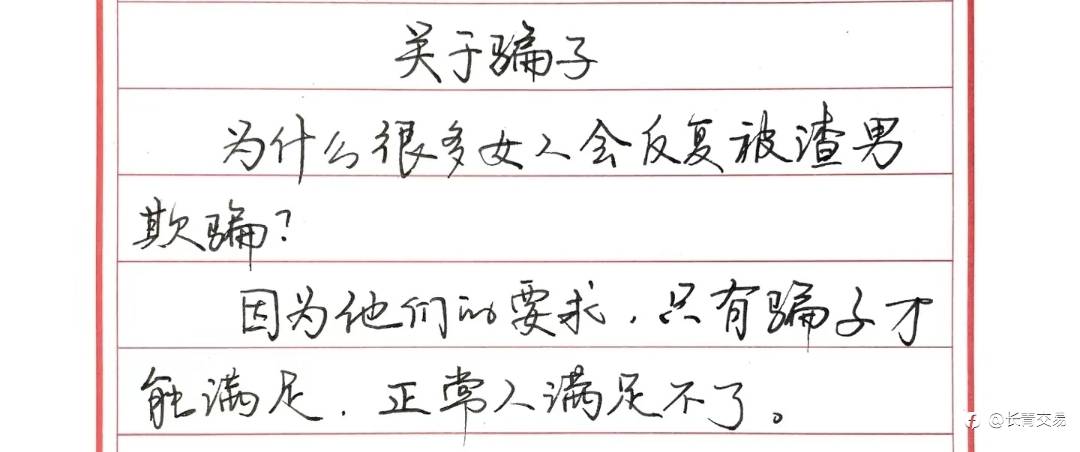 关于骗子
为什么很多女人会反复被渣男
欺骗?
因为他们的要求，只有骗子才
能满足．正常人满足不了。
@长青交易